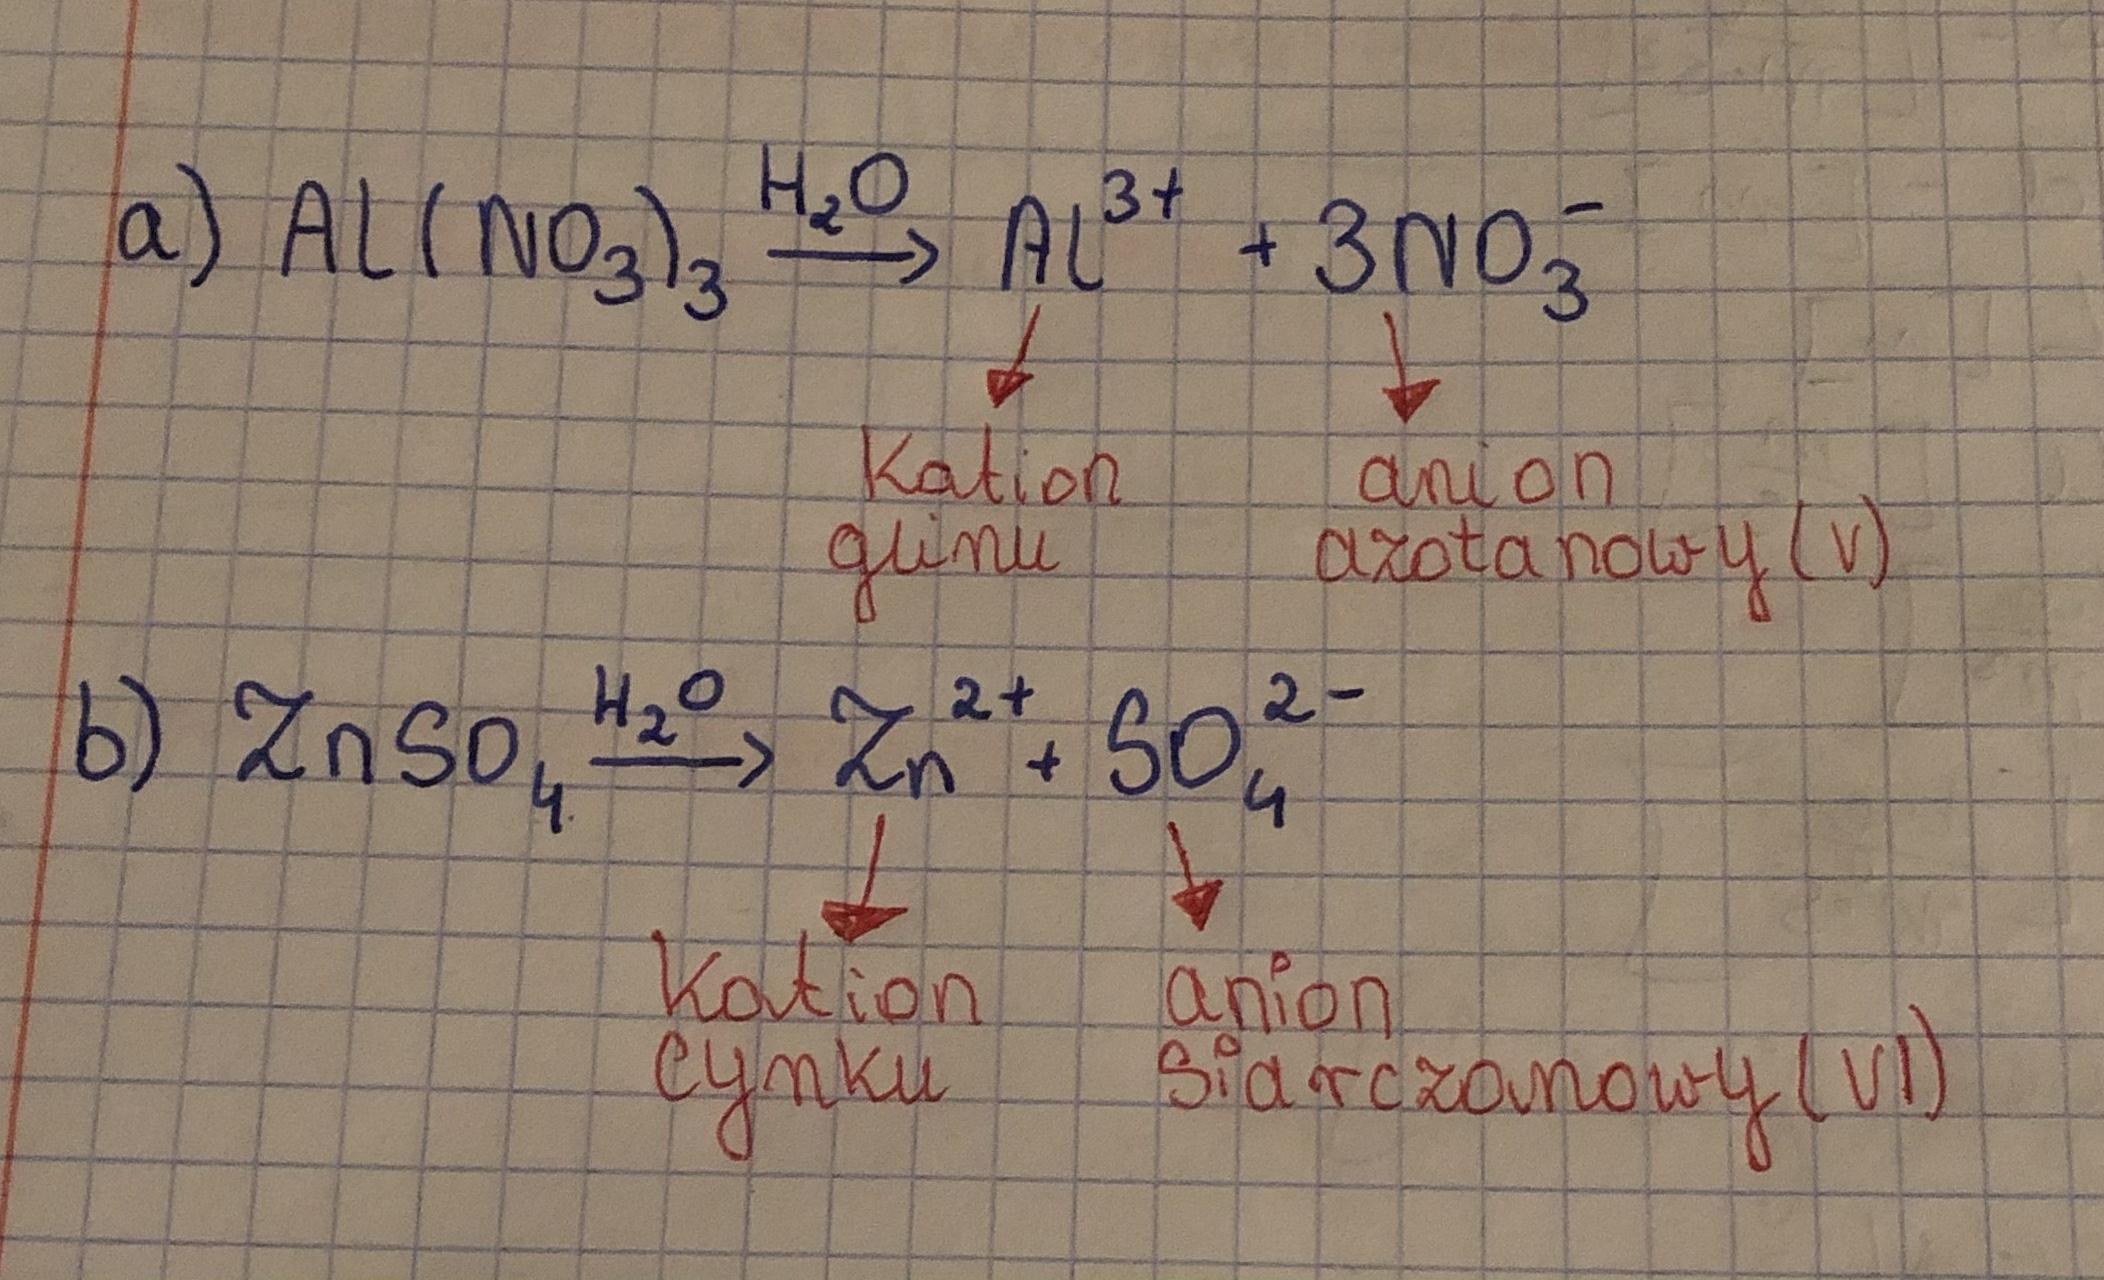 a) Al(NO₃)₃ H₂O→ Al³⁺ + 3NO₃⁻
Kation anion
glinu azotanowy (V)
b) ZnSO₄ H₂O→ Zn²⁺ + SO₄²⁻
Kation anion
cynku siarczanowy (VI)